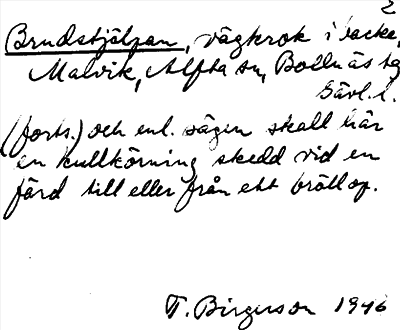 2
Brudstjälpan, vägkrok i backe,
Malvik, Alfta sn, Bollnäs tg
Gävl. l.
(forts.) och enl. sägen skall här
en kullkörning skedd vid en
färd till eller från ett bröllop.
T. Birgerson 1946